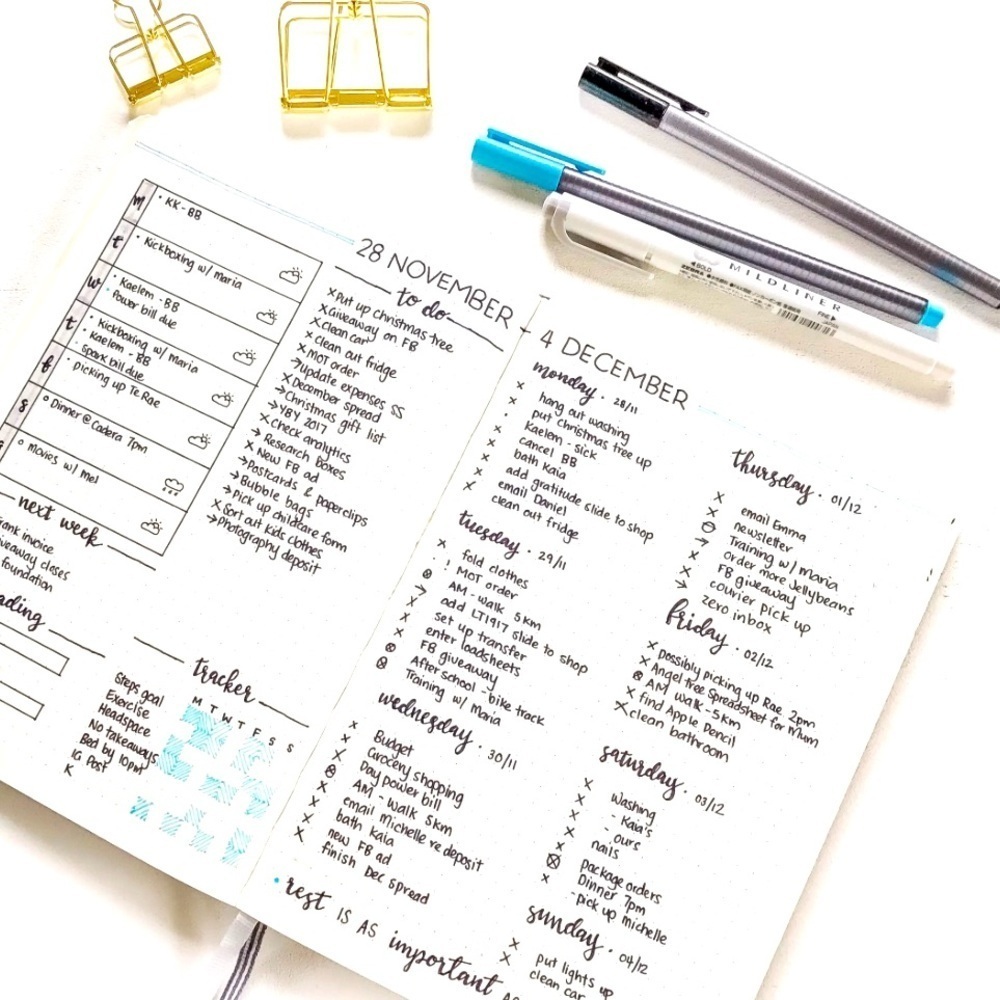 m
• KK - BB
t
• Kickboxing w/ maria
w
• Kaelem - BB
• Power bill due
t
• Kickboxing w/ maria
• Kaelem - BB
• Spark bill due
f
picking up Te Rae
s
Dinner @ Cadera 7pm
movies w/ mel
next week
invoice
closes
foundation
28 NOVEMBER
to do
× Put up christmas tree
× Giveaway on FB
× Clean car
× clean out fridge
× MOT order
→ update expenses SS
× December spread
→ Christmas gift list
→ YBY 2017
× Check analytics
→ Research Boxes
× New FB ad
→ Postcards & paperclips
→ Bubble bags
→ pick up childcare form
× Sort out kids clothes
→ Photography deposit
tracker
M T W T F S S
Steps goal
Exercise
Headspace
No takeaways
Bed by 10pm
IG Post
K
4 DECEMBER
monday . 28/11
× hang out washing
× put christmas tree up
· Kaelem - sick
× cancel BB
× bath kaia
× add gratitude slide to shop
× email Daniel
× clean out fridge
tuesday . 29/11
× fold clothes
! MOT order
⊗ AM - walk 5km
→ add LT1917 slide to shop
× set up transfer
× enter loadsheets
× FB giveaway
⊗ After school - bike track
⊗ Training w/ Maria
wednesday . 30/11
× Budget
× Grocery shopping
× Day power bill
⊗ AM - walk 5km
× email Michelle re deposit
× bath kaia
× new FB ad
× finish Dec spread
• rest IS AS important
thursday . 01/12
× email Emma
× newsletter
⊖ Training w/ maria
→ order more Jellybeans
× FB giveaway
× courier pick up
→ zero inbox
friday . 02/12
× possibly picking up Rae 2pm
× Angel tree spreadsheet for mum
⊗ AM walk - 5km
× find Apple Pencil
× clean bathroom
saturday . 03/12
× washing
× - Kaia's
× - ours
× nails
× package orders
⊗ Dinner 7pm
× - pick up Michelle
sunday . 04/12
× put lights up
× clean car
4 BOLD
ZEBRA
MILDLINER
FINE